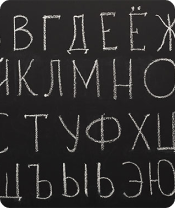 В Г Д Е Ё Ж
Й К Л М Н О
С Т У Ф Х Ц
Щ Ъ Ы Ь Э Ю